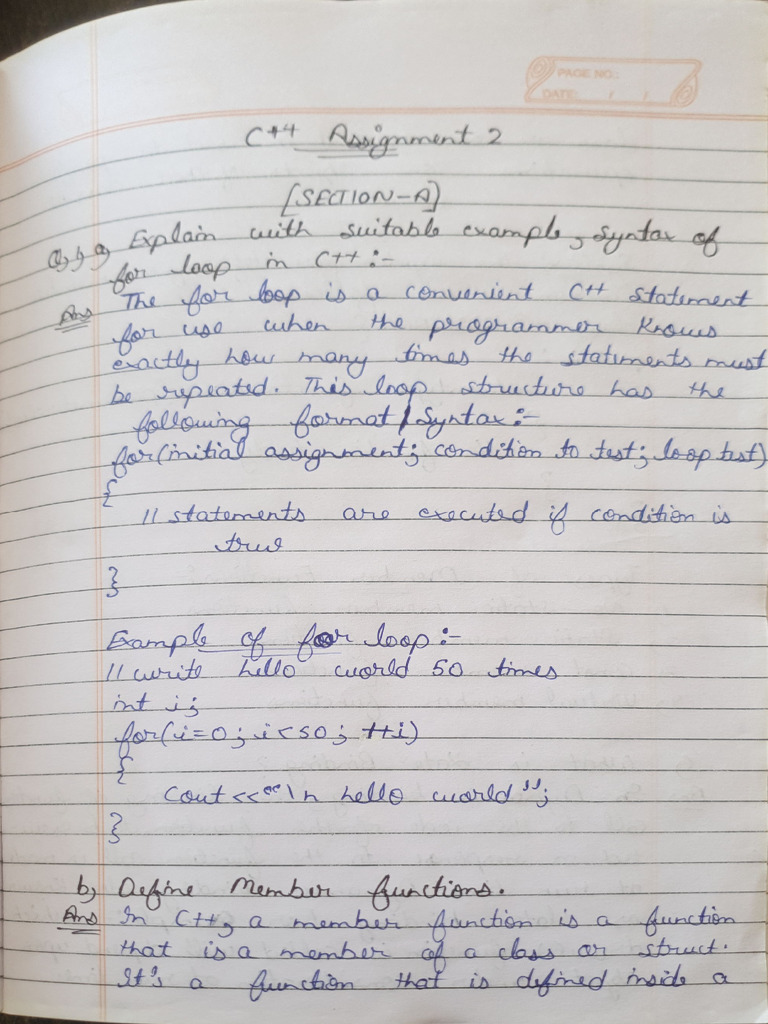 PAGE NO.:
DATE: / /
C++ Assignment 2
[SECTION-A]
Q,1, a, Explain with suitable example, syntax of
for loop in C++ :-
Ans The for loop is a convenient C++ statement
for use when the programmer knows
exactly how many times the statements must
be repeated. This loop structure has the
following format/Syntax:-
for(initial assignment; condition to test; loop test)
{
// statements are executed if condition is
true
}
Example of for loop:-
// write hello world 50 times
int i;
for(i=0; i<50; ++i)
{
Cout <<"\n hello world";
}
b, Define Member functions.
Ans In C++, a member function is a function
that is a member of a class or struct.
It's a function that is defined inside a